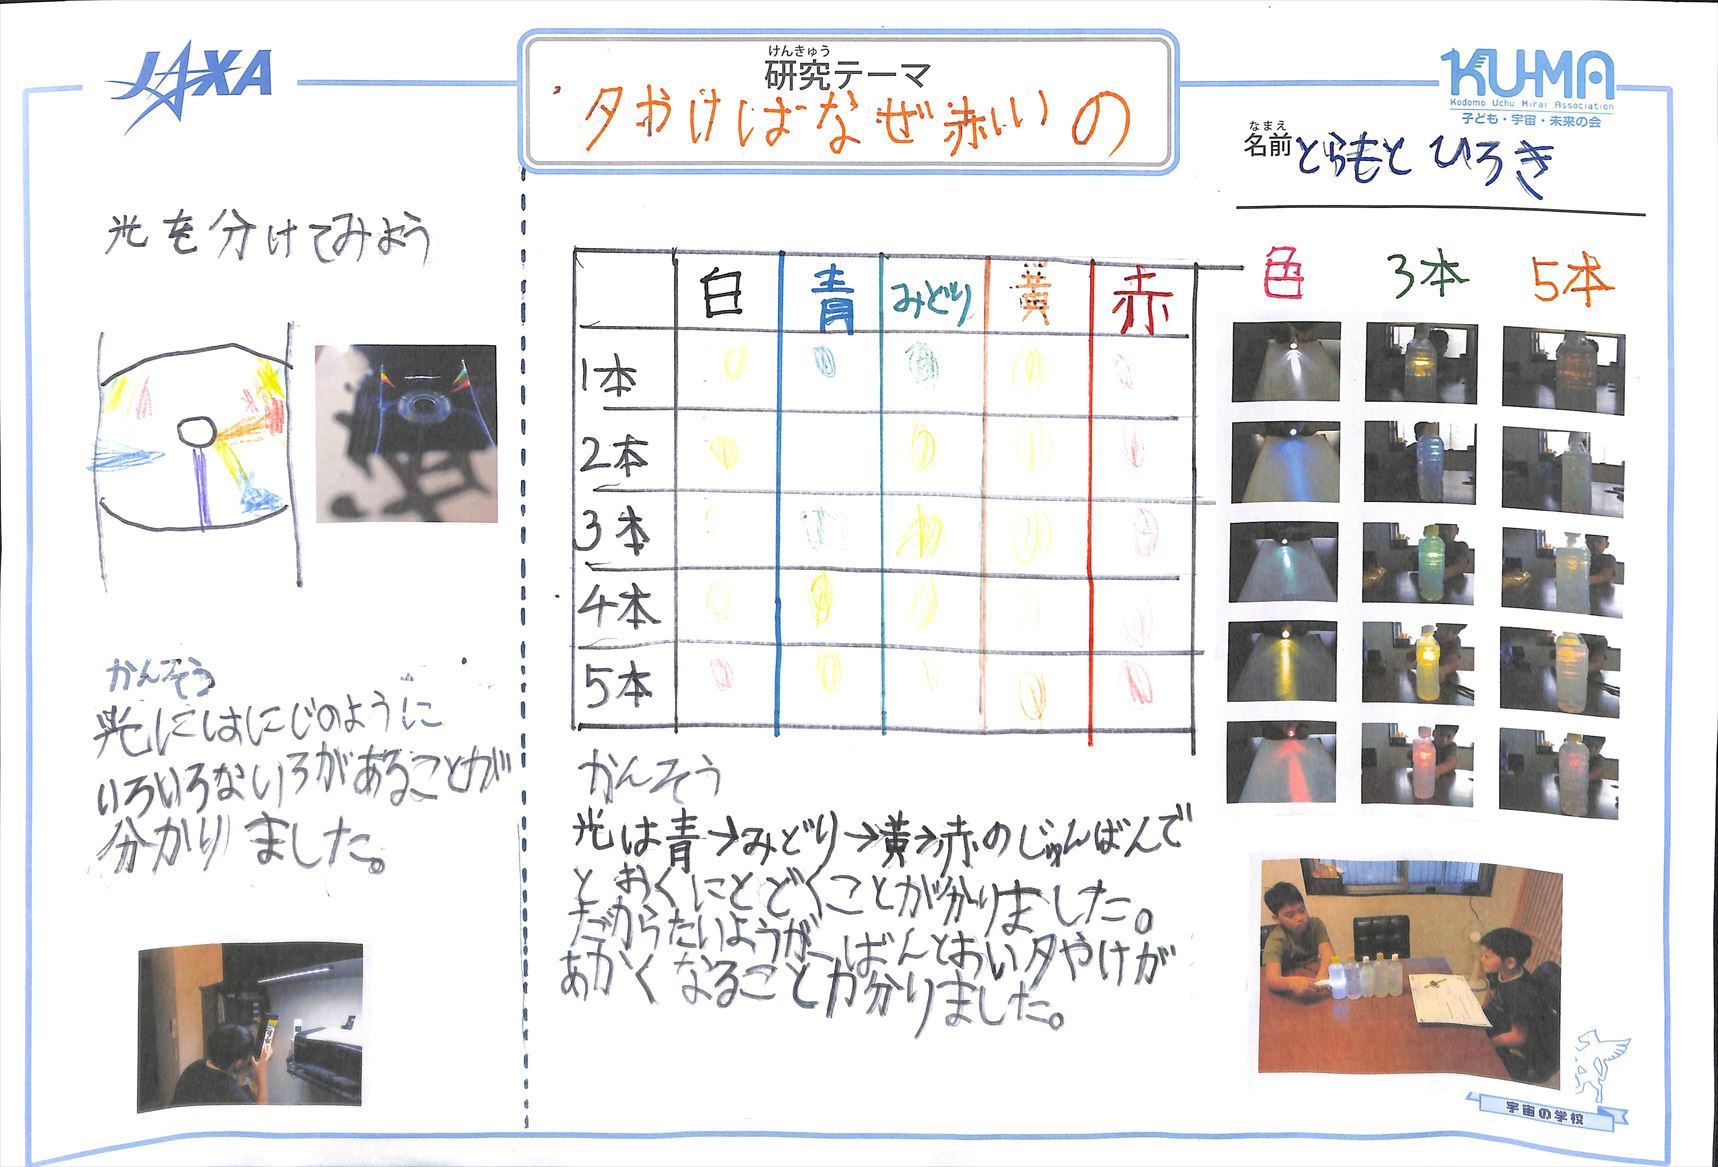 JAXA
けんきゅう
研究テーマ
夕やけはなぜ赤いの
KU-MA
Kodomo Uchu Mirai Association
子ども・宇宙・未来の会
なまえ
名前 とらもと ひろき
光を分けてみよう
かんそう
光にはにじのように
いろいろないろがあることが
分かりました。
白 青 みどり 黄 赤
1本
2本
3本
4本
5本
かんそう
光は青→みどり→黄→赤のじゅんばんで
とおくにとどくことが分かりました。
だからたいようが一ばんとおい夕やけが
あかくなることが分かりました。
色 3本 5本
宇宙の学校